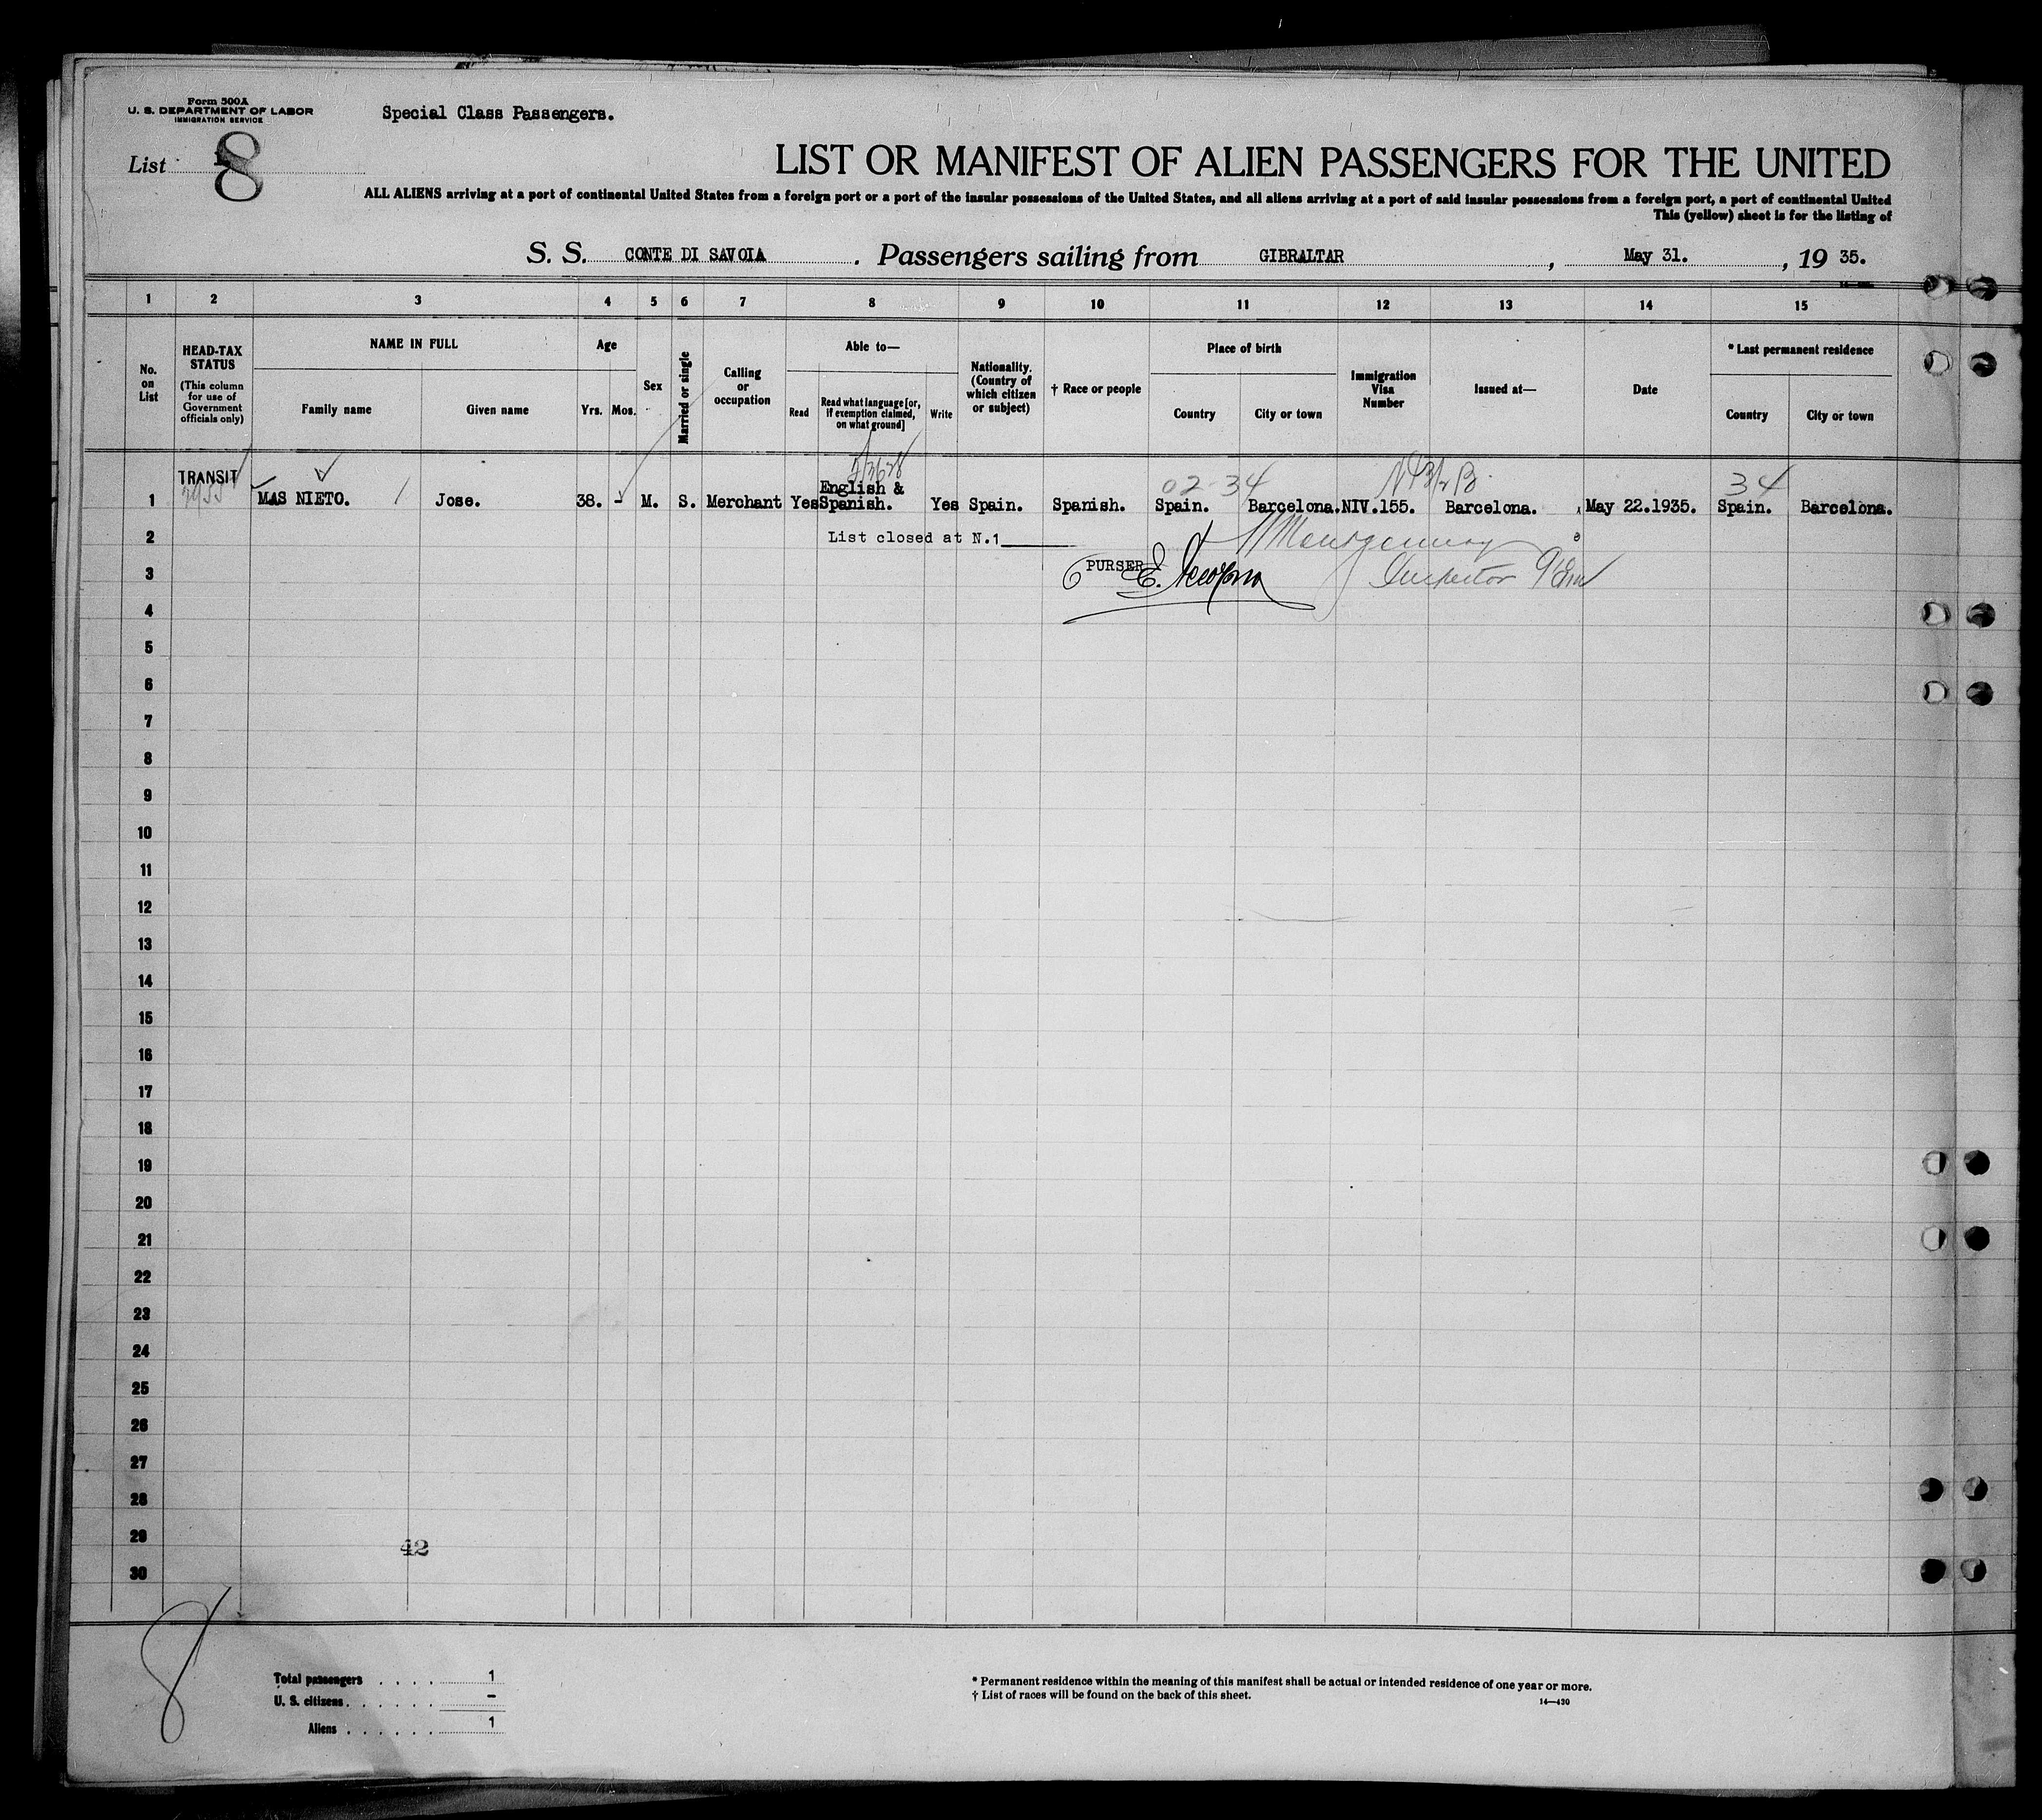 Form 500A
U. S. DEPARTMENT OF LABOR
IMMIGRATION SERVICE
Special Class Passengers.
List 8
LIST OR MANIFEST OF ALIEN PASSENGERS FOR THE UNITED
ALL ALIENS arriving at a port of continental United States from a foreign port or a port of the insular possessions of the United States, and all aliens arriving at a port of said insular possessions from a foreign port, a port of continental United
This (yellow) sheet is for the listing of
S. S. CONTE DI SAVOIA. Passengers sailing from GIBRALTAR, May 31., 19 35.
1 2 3 4 5 6 7 8 9 10 11 12 13 14 15
No. on List
HEAD-TAX STATUS
(This column for use of Government officials only)
NAME IN FULL
Family name
Given name
Age
Yrs. Mos.
Sex
Married or single
Calling or occupation
Able to—
Read
Read what language [or, if exemption claimed, on what ground]
Write
Nationality. (Country of which citizen or subject)
† Race or people
Place of birth
Country
City or town
Immigration Visa Number
Issued at—
Date
* Last permanent residence
Country
City or town
TRANSIT
02-34
34
1 MAS NIETO. Jose. 38. - M. S. Merchant Yes English & Spanish. Yes Spain. Spanish. Spain. Barcelona. NIV.155. Barcelona. May 22.1935. Spain. Barcelona.
2 List closed at N.1 Montgomery
3 PURSER Inspector
4
5
6
7
8
9
10
11
12
13
14
15
16
17
18
19
20
21
22
23
24
25
26
27
28
29
42
30
8
Total passengers . . . . 1
U. S. citizens . . . . . . -
Aliens . . . . . . 1
* Permanent residence within the meaning of this manifest shall be actual or intended residence of one year or more.
† List of races will be found on the back of this sheet.
14—430